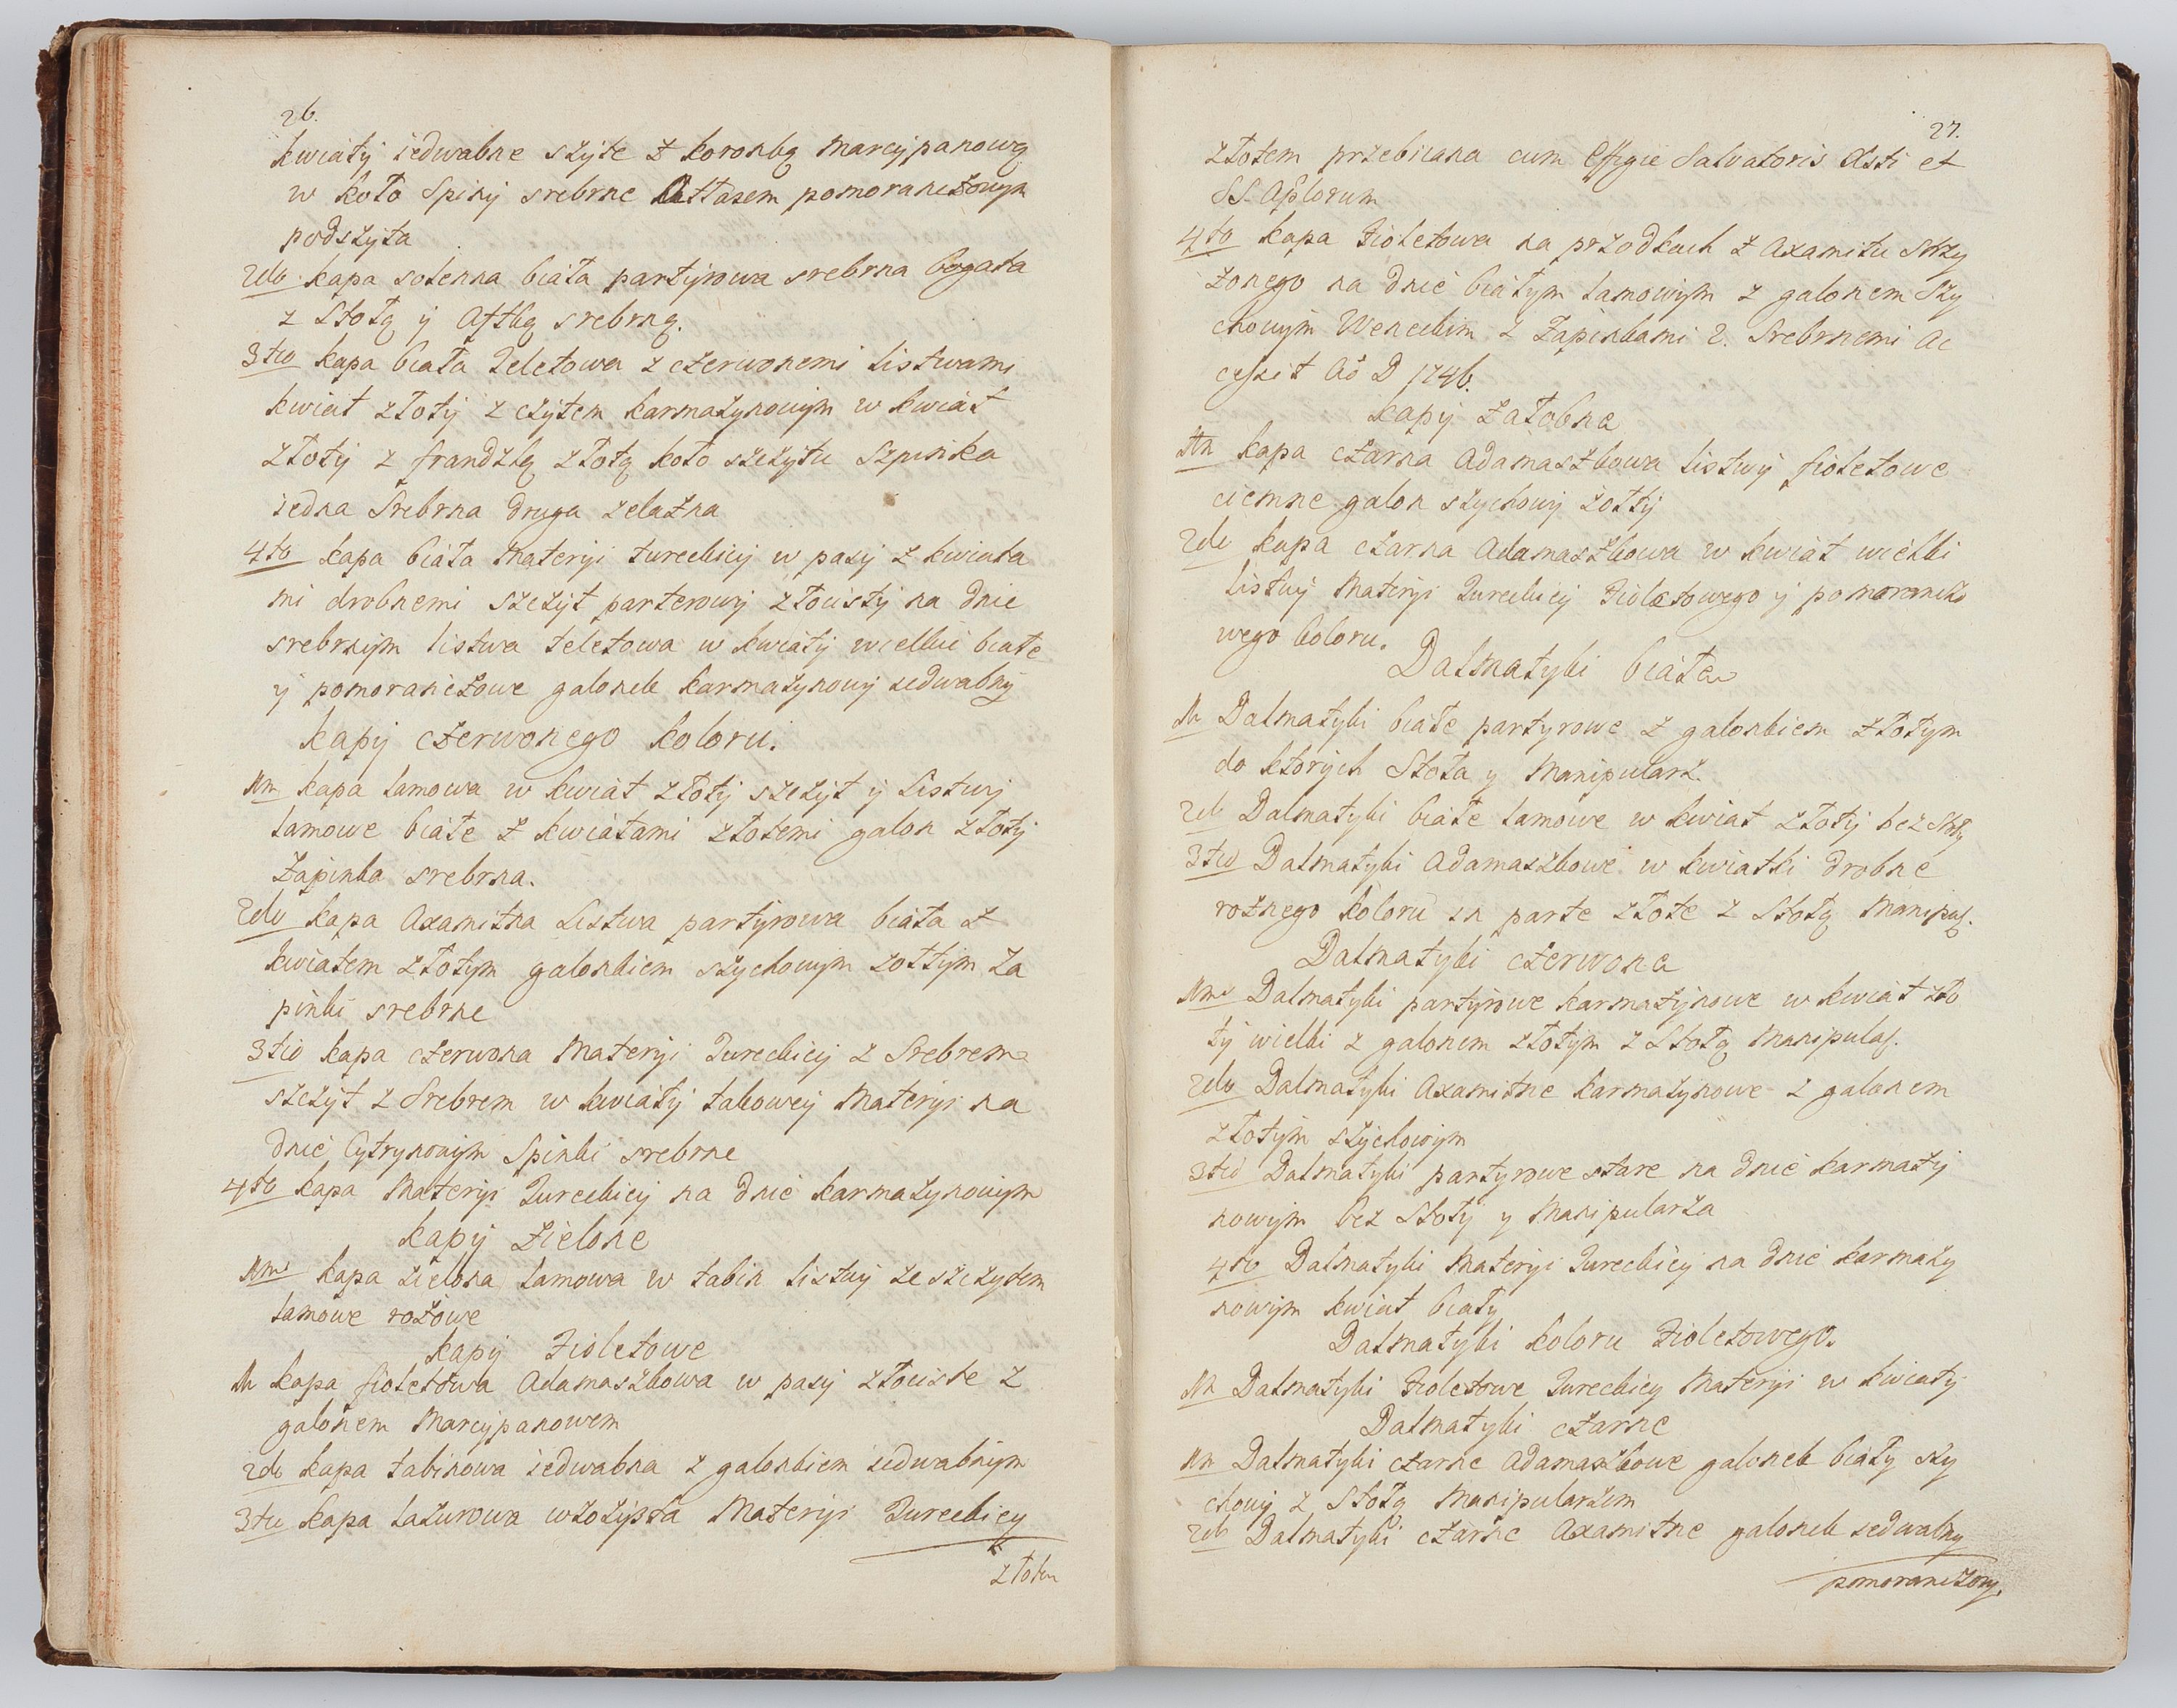 26.
kwiaty iedwabne szyte z koronką Marcypanową
w koło Spinÿ srebrne Attłasem pomoranczowym
podszyta
2do kapa solenna biała partyrowa srebrna bogata
z Stołą ÿ Aftką srebrną.
3tio kapa biała Teletowa z czerwonemi listwami
kwiat złotÿ z czÿtem karmazynowÿm w kwiat
złotÿ z frandzlą złotą koło szczytu Szpinka
iedna Srebrna druga zelazna
4to kapa biała Materÿi tureckieÿ w pasÿ z kwiata
mi drobnemi szczÿt parterowÿ złocistÿ na dnie
srebrnÿm listwa teletowa w kwiatÿ wielkie białe
ÿ pomoranczowe galonek karmazynowÿ iedwabnÿ
kapÿ czerwonego koloru.
1mo kapa lamowa w kwiat złotÿ szczÿt ÿ listwÿ
lamowe białe z kwiatami złotemi galon złotÿ
Zapinka srebrna.
2do kapa Axamitna Listwa partÿrowa biała z
kwiatem złotÿm galonkiem szychowÿm zołtÿm Za
pinki srebrne
3tio kapa czerwona Materÿi Tureckieÿ z Srebrem
szczÿt z Srebrem w kwiatÿ takoweÿ Materÿi na
dnie Cytrynowÿm Spinki srebrne
4to kapa Materÿi Tureckieÿ na dnie karmazynowÿm
kapÿ zielone
1mo kapa zielona lamowa w tabin listwÿ ze szczytem
lamowe rożowe
kapÿ Fioletowe
1m kapa fioletowa Adamaszkowa w pasÿ złociste z
galonem Marcypanowem
2do kapa tabinowa iedwabna z galonkiem iedwabnÿm
3tio kapa lazurowa Materÿi Tureckieÿ
złotem
27.
złotem przebiiana cum Effigie Salvatoris Xsti et
SS. Aplorum
4to kapa Fioletowa na przodkach z Axamitu Strzy
żonego na dnie białym lamowÿm z galonem Szy
chowÿm Weneckim z Zapinkami 2. Srebrnemi Ac
cessit Ao D 1746.
kapÿ Załobne
1m kapa czarna Adamaszkowa listwÿ fioletowe
ciemne galon szychowÿ żołtÿ
2do kapa czarna Adamaszkowa w kwiat wielki
listwÿ Materÿi Tureckieÿ Fioletowego ÿ pomoranczo
wego koloru.
Dalmatyki białe
1m Dalmatyki białe partyrowe z galonkiem złotym
do ktorÿch Stoła y Manipularz.
2do Dalmatyki białe lamowe w kwiat złotÿ bez Stoły
3tio Dalmatyki Adamaszkowe w kwiatki drobne
rożnego koloru in parte złote z Stołą Manipul.
Dalmatyki czerwone
1mo Dalmatyki partÿrowe karmazÿnowe w kwiat zło
tÿ wielki z galonem złotÿm z Stołą Manipular.
2do Dalmatyki Axamitne karmazynowe z galonem
złotÿm szÿchowÿm
3tio Dalmatyki partyrowe stare na dnie karmazÿ
nowÿm bez Stołÿ y Manipularza
4to Dalmatyki Materÿi Tureckieÿ na dnie karmazy
nowÿm kwiat białÿ
Dalmatyki koloru Fioletowego.
1m Dalmatyki Fioletowe Tureckiey Materÿi w kwiatÿ
Dalmatyki czarne
1m Dalmatyki czarne Adamaszkowe galonek biały szy
chowÿ z Stołą Manipularzem
2do Dalmatyki czarne Axamitne galonek iedwabny
pomoranczowy.